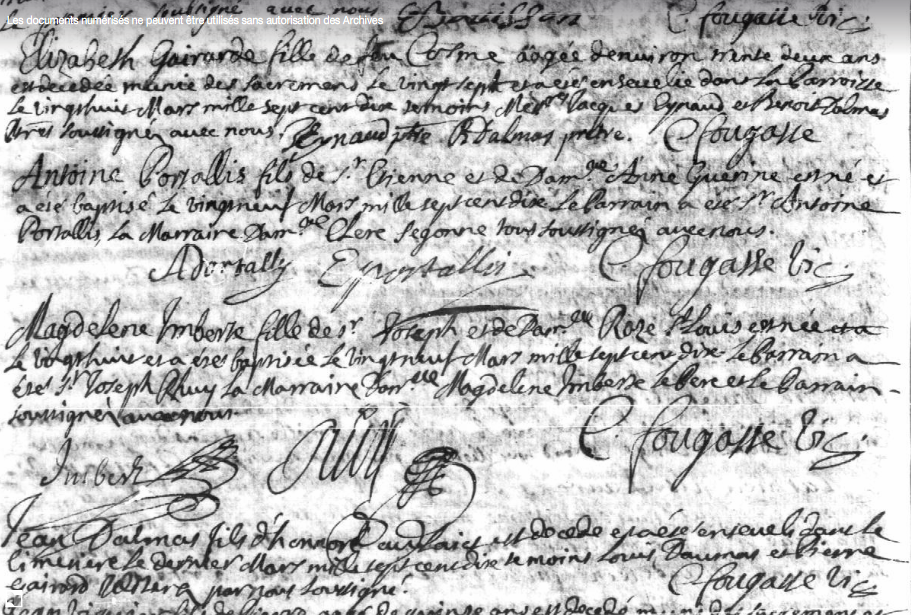 Les documents numérisés ne peuvent être utilisés sans autorisation des Archives
soutigné avec nous C. fougasse Vic.
Elizabeth Gairarde fille de feu Cosme aagée denuiron trente deux ans
est decedée munie des sacremens le vingt sept et a esté enseuelie dans la Parroisse
Le vingthuit Mars mille sept cent dix temoins Mess.rs Jacques Eynaud et Benoit Dalmas
Ptres soutignez avec nous. Eynaud ptre BDalmas prêtre. C. fougasse
Antoine Portallis fils de s.r Etienne et de Dam.lle Anne Guerine est né et
a esté baptisé Le vingtneuf Mars mille sept cent dix Le Parrain a été s.r Antoine
Portallis, La Marraine Dam.lle Clere Segonne tous soutignez avec nous.
APortally EPortallis C. fougasse Vic.
Magdelene Imberte fille de s.r Joseph et de Dam.lle Roze St Louis est née et a
Le vingthuit et a été baptisée Le vingtneuf Mars mille sept cent dix Le Parrain a
été s.r Joseph La Marraine Dam.lle Magdelene Imberte Le Pere et Le Parrain
soutignez avec nous
Imbert C. fougasse Vic.
Jean Dalmas fils d'honnoré est decedé et a été enseueli dans le
Cimetiere Le dernier Mars mille sept cent dix temoins Louis Daumas et Pierre
Gairard par nous soutigné. C. fougasse Vic.
est decedé